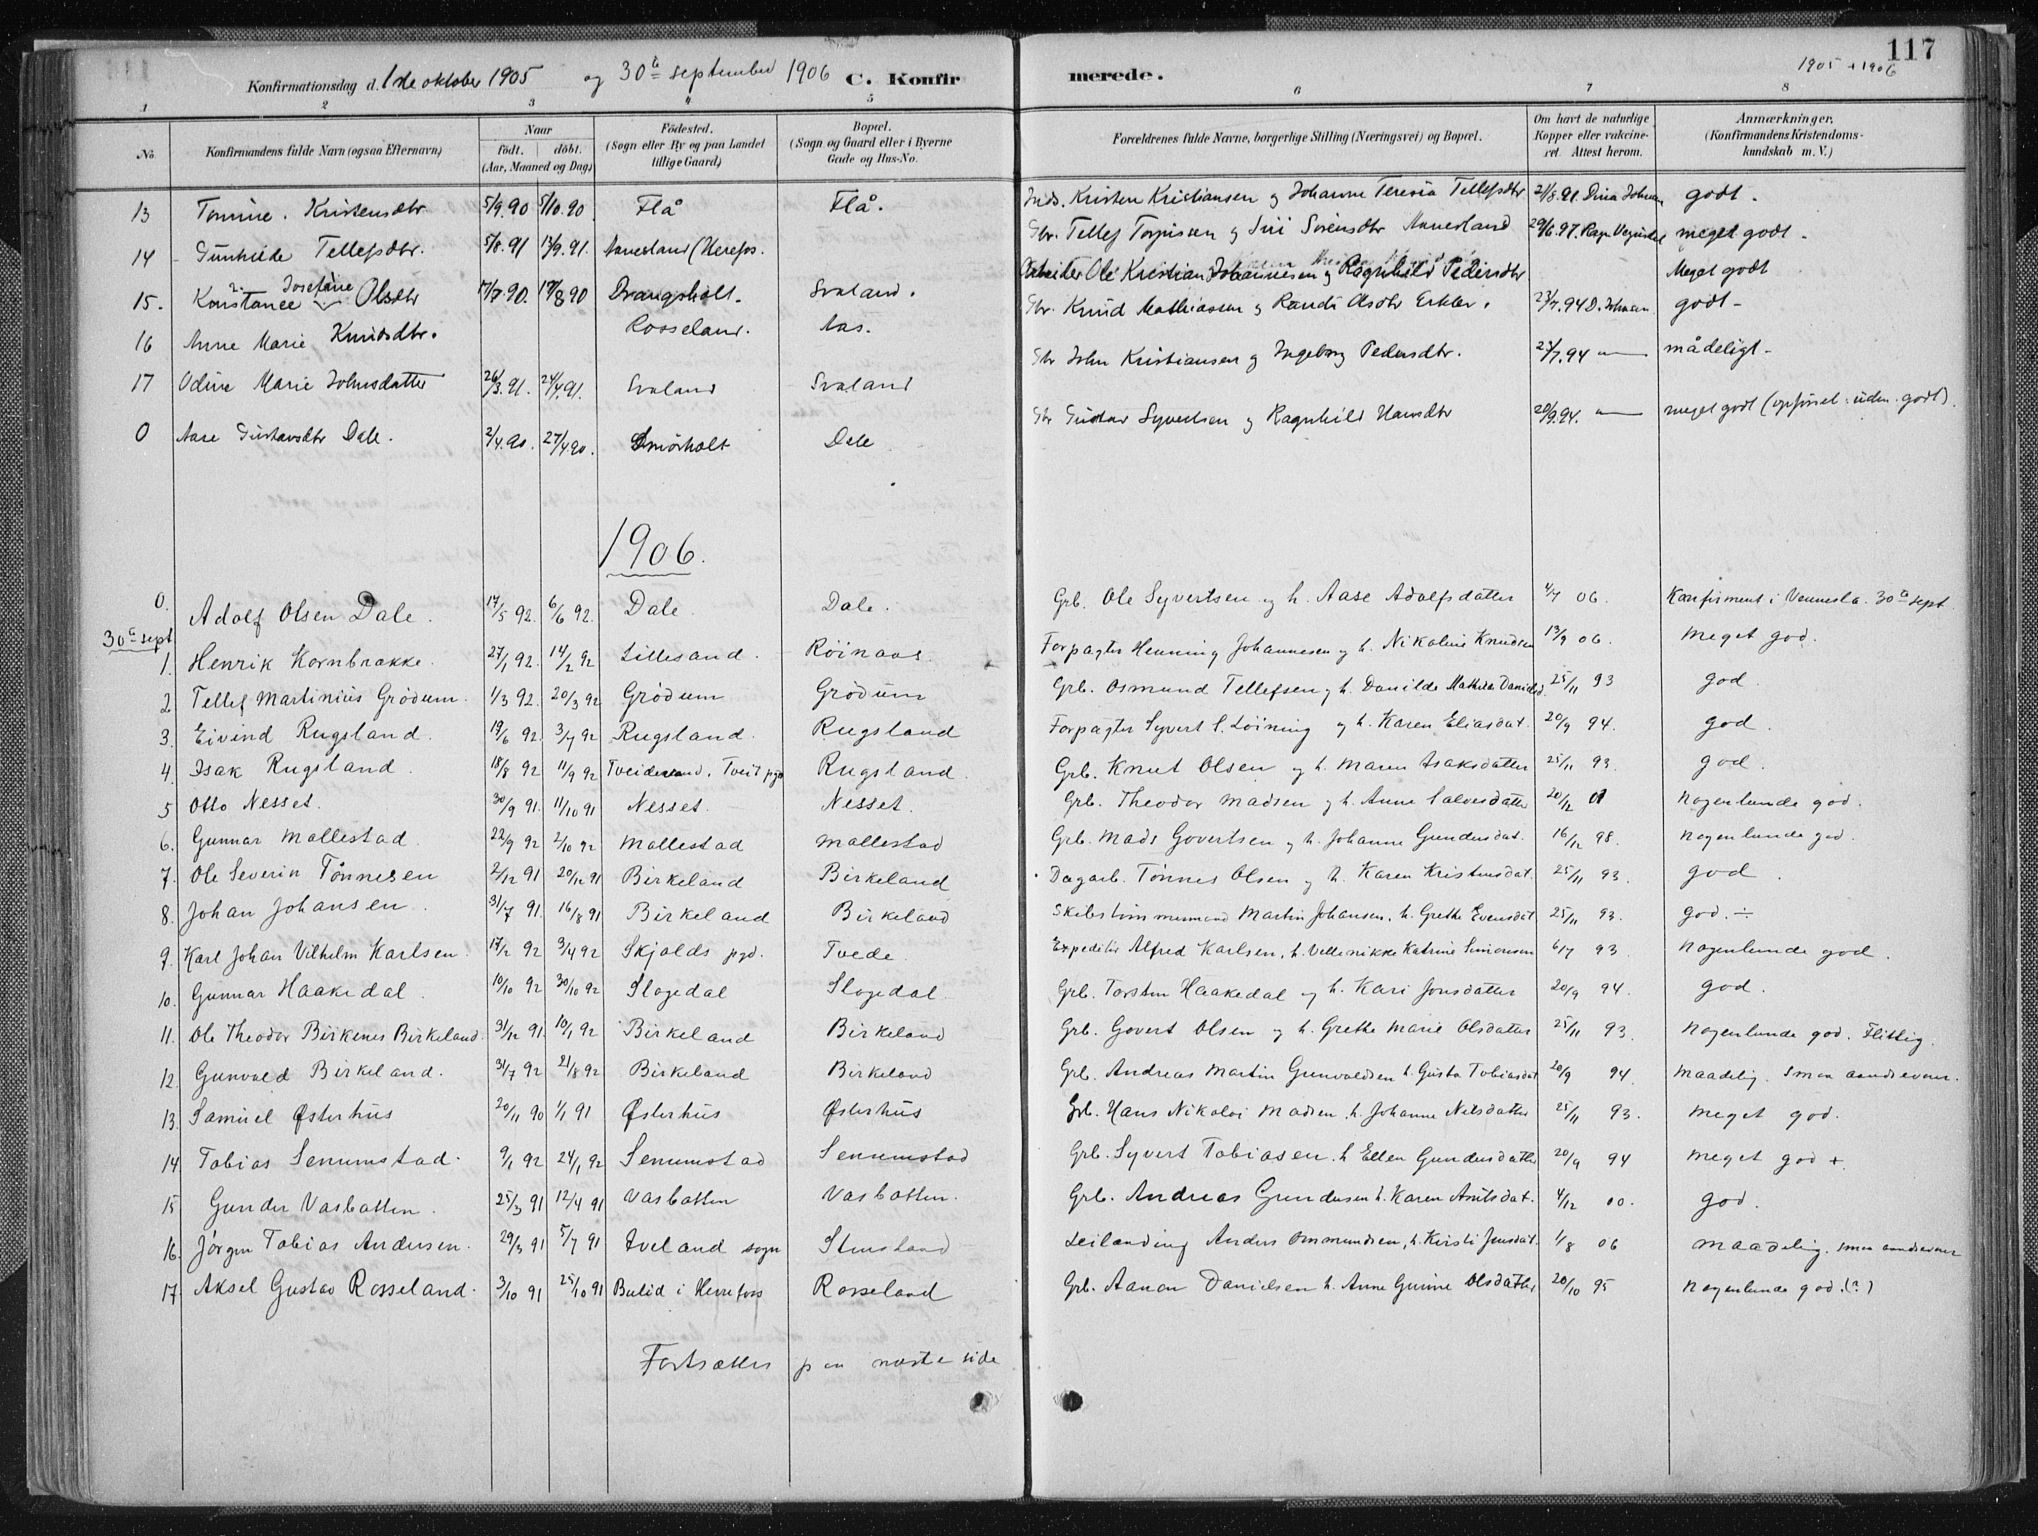 117
1905 + 1906
Konfirmationsdag d. 1de oktober 1905 og 30te september 1906 C. Konfirmerede.
1 2 3 4 5 6 7 8
No
Konfirmandens fulde Navn (ogsaa Efternavn)
Naar födt. döbt. (Aar, Maaned og Dag)
Födested. (Sogn eller By og paa Landet tillige Gaard)
Bopæl. (Sogn og Gaard eller i Byerne Gade og Hus-No.
Forældrenes fulde Navne, borgerlige Stilling (Næringsvei) og Bopæl.
Om havt de naturlige Kopper eller vakcineret Attest herom.
Anmærkninger. (Konfirmandens Kristendomskundskab m. V.)
13 Tomine. Kristensdtr 5/9.90 5/10.90 Flå Flå. Inds. Kristen Kristiansen og Johanne Teresia Tellefsdtr 21/8.91. godt.
14 Gunhilde Tellefsdtr. 5/8.91 13/9.91. Gbr. Tellef Torjussen og Siri Sörensdtr 29/6.97. meget godt.
Arbeider Ole Kristian Johannesen og Ragnhild Pedersdtr Meget godt
15. Konstance Josefine Olsdtr 17/7.90. 17/8 90 Drangsholt. Svaland. Gbr. Knud Mathiassen og Randi Olsdtr 23/7.94 godt
16 Anne Marie Knudsdtr. Rosseland. Aas. Gbr John Kristiansen og Ingeborg Pedersdtr. 23/7.94 mådeligt
17 Odine Marie Johnsdatter 26/3.91. 24/4.91. Svaland Svaland
0 Aase Gustavsdtr Dale. 2/4.90. 27/4 90. Smörholt Dale Gbr Gustav Syvertsen og Ragnhild Hansdtr 20/9.94. meget godt
1906.
0. Adolf Olsen Dale. 17/5 92. 6/6 92. Dale. Dale. Grb. Ole Syvertsen og h. Aase Adolfsdatter 4/7 06. Konfirment i Vennesla. 30te sept.
30te sept
1. Henrik Kornbrække. 27/1 92. 14/2 92 Lillesand. Röinaas. Forpagter Henning Johannesen og h. Nikoline Knudsen 13/9 06. meget god.
2 Tellef Martinius Grödum. 1/3 92. 20/3 92 Grödum Grödum Grb. Osmund Tellefsen og h. Danilde Mathilde Danielsd. 25/11 93 god.
3. Eivind Rugsland. 19/6 92. 3/7 92 Rugsland. Rugsland Forpagter Syvert S. Löining og h. Karen Eliasdat. 20/9 94. god.
4. Isak Rugsland. 18/8 92 11/9 92 Tveideland, Tveit pgd Rugsland. Grb. Knut Olsen og h. Maren Isaksdatter 25/11 93. god.
5 Otto Nesset. 30/9 91. 11/10 91 Nesset. Nesset. Grb. Theodor Madsen og h. Anne Salvesdatter 20/12 01 nogenlunde god.
6. Gunnar Mollestad. 22/9 92 2/10 92 Mollestad Mollestad Grb. Mads Govertsen og h. Johanne Gundersdat. 16/12 98. nogenlunde god.
7. Ole Severin Tönnesen 2/12 91 20/12 91 Birkeland Birkeland Dagarb. Tönnes Olsen og h. Karen Kristensdat. 25/11 93. god.
8. Johan Johansen. 31/7 91. 16/8 91 Birkeland Birkeland Skibstömmermand Martin Johansen, h. Grethe Evensdat 25/11 93. god. ÷
9. Karl Johan Vilhelm Karlsen. 17/2 92 3/4 92 Skjolds pgd. Tvede. Expeditör Alfred Karlsen, h. Vellerikke Katrine Simonsen 6/7 93. nogenlunde god.
10. Gunnar Haakedal. 10/10 92 30/10 92 Slogedal Slogedal. Grb. Torsten Haakedal og h. Kari Jonsdatter 20/9 94. god.
11. Ole Theodor Birkenes Birkeland. 31/12 91 10/1 92 Birkeland Birkeland Grb. Govert Olsen og h. Grethe Marie Olsdatter 25/11 93. nogenlunde god. Flittig.
12. Gunvald Birkeland. 31/7 92 21/8 92 Birkeland Birkeland Grb. Andreas Martin Gunvaldsen h. Gusta Tobiasdat 20/9 94. maadelig. smaa aandsevner.
13. Samuel Østerhus 20/11 90 1/1 91 Østerhus Østerhus Grb. Hans Nikolai Madsen, h. Johanne Nilsdatter 25/11 93. meget god.
14 Tobias Senumstad. 9/1 92 24/1 92 Senumstad Senumstad Grb. Syvert Tobiasen. h Ellen Gundersdatter 20/9 94 meget god +.
15 Gunder Vasbotten. 25/3 91 12/4 91 Vasbotten Vasbotten. Grb. Andreas Gundersen h. Karen Asulsdat. 4/12 00. god.
16. Jörgen Tobias Andersen. 29/3 91 5/7 91 Iveland sogn Stensland Leilænding Anders Ommundsen, h. Kirsti Jensdat. 1/8 06 maadelig. smaa aandsevner
17 Aksel Gustav Rosseland. 3/10 91 25/10 91 Rosseland Grb. Aanon Danielsen h. Anne Gurine Olsdatter 20/10 95 nogenlunde god. (?)
Fortsættes paa næste side